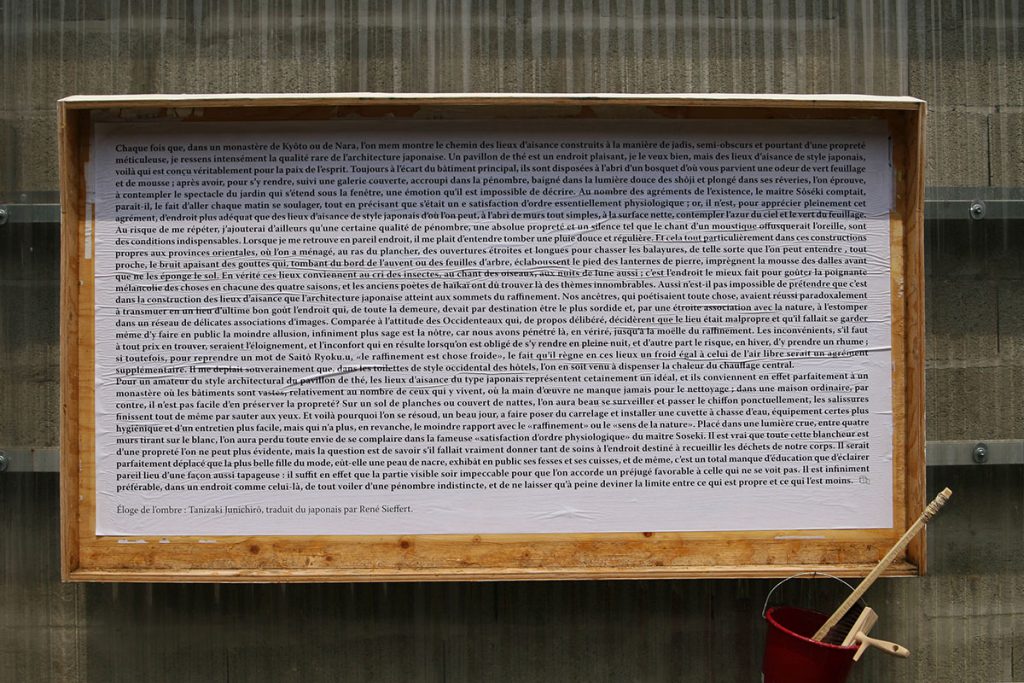 Chaque fois que, dans un monastère de Kyôto ou de Nara, l'on mem montre le chemin des lieux d'aisance construits à la manière de jadis, semi-obscurs et pourtant d'une propreté
méticuleuse, je ressens intensément la qualité rare de l'architecture japonaise. Un pavillon de thé est un endroit plaisant, je le veux bien, mais des lieux d'aisance de style japonais,
voilà qui est conçu véritablement pour la paix de l'esprit. Toujours à l'écart du bâtiment principal, ils sont disposés à l'abri d'un bosquet d'où vous parvient une odeur de vert feuillage
et de mousse ; après avoir, pour s'y rendre, suivi une galerie couverte, accroupi dans la pénombre, baigné dans la lumière douce des shôji et plongé dans ses rêveries, l'on éprouve,
à contempler le spectacle du jardin qui s'étend sous la fenêtre, une émotion qu'il est impossible de décrire. Au nombre des agréments de l'existence, le maître Sôseki comptait,
paraît-il, le fait d'aller chaque matin se soulager, tout en précisant que s'était un e satisfaction d'ordre essentiellement physiologique ; or, il n'est, pour apprécier pleinement cet
agrément, d'endroit plus adéquat que des lieux d'aisance de style japonais d'où l'on peut, à l'abri de murs tout simples, à la surface nette, contempler l'azur du ciel et le vert du feuillage.
Au risque de me répéter, j'ajouterai d'ailleurs qu'une certaine qualité de pénombre, une absolue propreté et un silence tel que le chant d'un moustique offusquerait l'oreille, sont
des conditions indispensables. Lorsque je me retrouve en pareil endroit, il me plaît d'entendre tomber une pluie douce et régulière. Et cela tout particulièrement dans ces constructions
propres aux provinces orientales, où l'on a ménagé, au ras du plancher, des ouvertures étroites et longues pour chasser les balayures, de telle sorte que l'on peut entendre , tout
proche, le bruit apaisant des gouttes qui, tombant du bord de l'auvent ou des feuilles d'arbre, éclaboussent le pied des lanternes de pierre, imprègnent la mousse des dalles avant
que ne les éponge le sol. En vérité ces lieux conviennent au cri des insectes, au chant des oiseaux, aux nuits de lune aussi ; c'est l'endroit le mieux fait pour goûter la poignante
mélancolie des choses en chacune des quatre saisons, et les anciens poètes de haïkaï ont dû trouver là des thèmes innombrables. Aussi n'est-il pas impossible de prétendre que c'est
dans la construction des lieux d'aisance que l'architecture japonaise atteint aux sommets du raffinement. Nos ancêtres, qui poétisaient toute chose, avaient réussi paradoxalement
à transmuer en un lieu d'ultime bon goût l'endroit qui, de toute la demeure, devait par destination étre le plus sordide et, par une étroite association avec la nature, à l'estomper
dans un réseau de délicates associations d'images. Comparée à l'attitude des Occidenteaux qui, de propos délibéré, décidèrent que le lieu était malpropre et qu'il fallait se garder
même d'y faire en public la moindre allusion, infiniment plus sage est la nôtre, car nous avons pénétré là, en vériré, jusqu'à la moëlle du raffinement. Les inconvénients, s'il faut
à tout prix en trouver, seraient l'éloignement, et l'inconfort qui en résulte lorsqu'on est obligé de s'y rendre en pleine nuit, et d'autre part le risque, en hiver, d'y prendre un rhume ;
si toutefois, pour reprendre un mot de Saitô Ryoku.u, «le raffinement est chose froide», le fait qu'il règne en ces lieux un froid égal à celui de l'air libre serait un agrément
supplémentaire. Il me déplait souverainement que, dans les toilettes de style occidental des hôtels, l'on en soit venu à dispenser la chaleur du chauffage central.
Pour un amateur du style architectural du pavillon de thé, les lieux d'aisance du type japonais représentent cetainement un idéal, et ils conviennent en effet parfaitement à un
monastère où les bâtiments sont vastes, relativement au nombre de ceux qui y vivent, où la main d'œuvre ne manque jamais pour le nettoyage ; dans une maison ordinaire, par
contre, il n'est pas facile d'en préserver la propreté? Sur un sol de planches ou couvert de nattes, l'on aura beau se surveiller et passer le chiffon ponctuellement, les salissures
finissent tout de même par sauter aux yeux. Et voilà pourquoi l'on se résoud, un beau jour, a faire poser du carrelage et installer une cuvette à chasse d'eau, équipement certes plus
hygiénique et d'un entretien plus facile, mais qui n'a plus, en revanche, le moindre rapport avec le «raffinement» ou le «sens de la nature». Placé dans une lumière crue, entre quatre
murs tirant sur le blanc, l'on aura perdu toute envie de se complaire dans la fameuse «satisfaction d'ordre physiologique» du maitre Soseki. Il est vrai que toute cette blancheur est
d'une propreté l'on ne peut plus évidente, mais la question est de savoir s'il fallait vraiment donner tant de soins à l'endroit destiné à recueillir les déchets de notre corps. Il serait
parfaitement déplacé que la plus belle fille du mode, eût-elle une peau de nacre, exhibât en public ses fesses et ses cuisses, et de même, c'est un total manque d'éducation que d'éclairer
pareil lieu d'une façon aussi tapageuse : il suffit en effet que la partie visible soir impeccable pour que l'on accorde un préjugé favorable à celle qui ne se voit pas. Il est infiniment
préférable, dans un endroit comme celui-là, de tout voiler d'une pénombre indistincte, et de ne laisser qu'à peine deviner la limite entre ce qui est propre et ce qui l'est moins.
Éloge de l'ombre : Tanizaki Junichirô, traduit du japonais par René Sieffert.